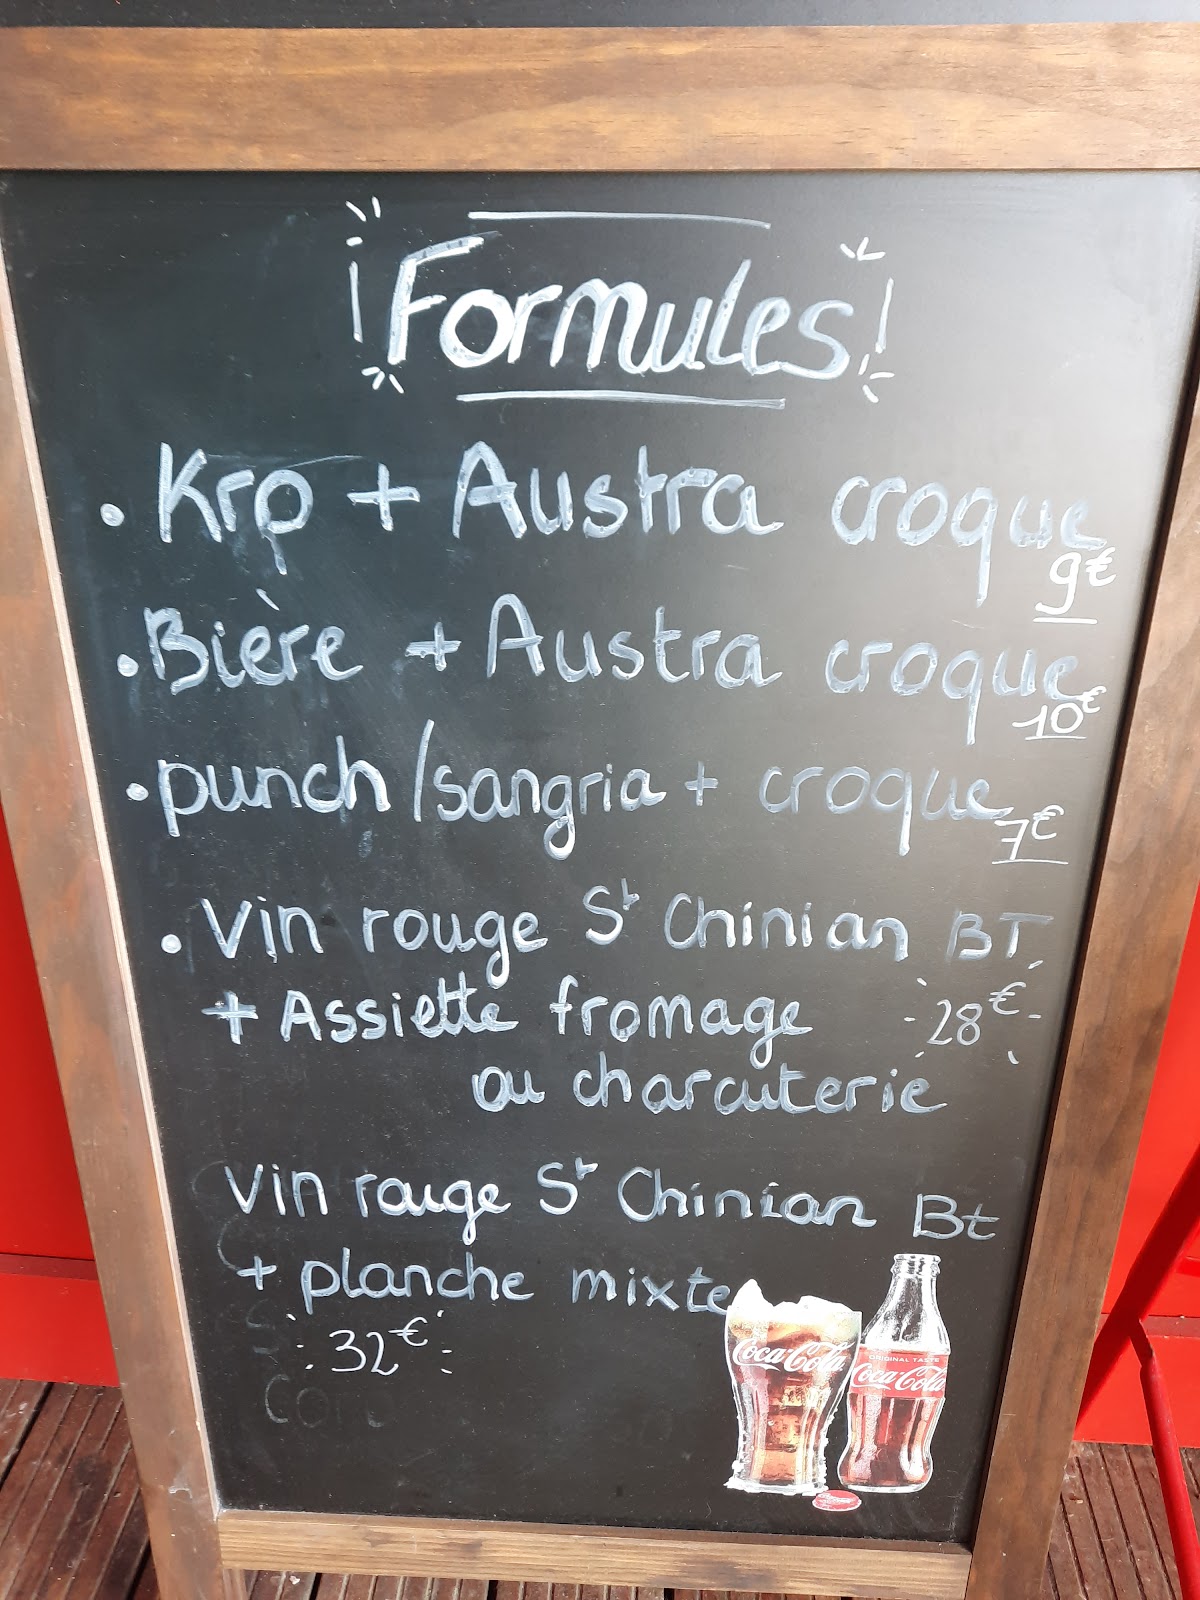 Formules
• Kro + Austra croque
9€
• Bière + Austra croque
10€
• punch / sangria + croque
7€
• Vin rouge St Chinian BT
+ Assiette fromage 28€
ou charcuterie
Vin rouge St Chinian Bt
+ planche mixte
32€
Coca-Cola
ORIGINAL TASTE
Coca-Cola